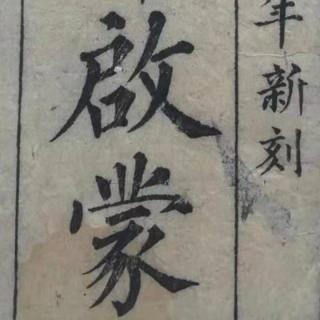 年新刻
啟蒙